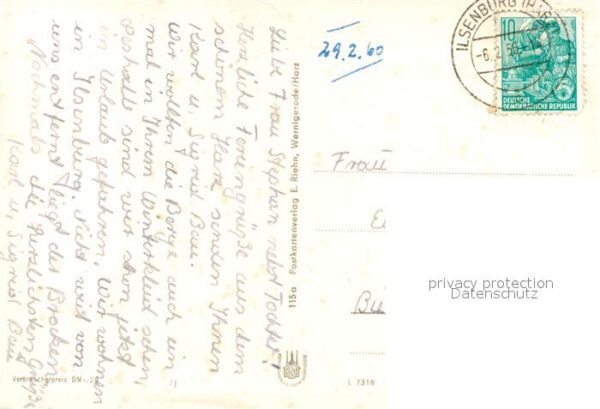 Liebe Frau Stephan nebst Tochter!
Herzliche Feriengrüße aus dem
schönen Harz senden Ihnen
Karl u. Sigrid Bau.
Wir wollten die Berge auch ein-
mal in Ihrem Winterkleid sehen,
deshalb sind wir schon jetzt
in Urlaub gefahren. Wir wohnen
in Ilsenburg. Nicht weit von
uns entfernt liegt der Brocken.
Nochmals die herzlichsten Grüße
Karl u. Sigrid Bau
Verbraucherpreis DM
115a Postkartenverlag E. Riehn, Wernigerode/Harz
L 7318
29.2.60
ILSENBURG (HARZ)
-6.2.60
10
DEUTSCHE
DEMOKRATISCHE REPUBLIK
Frau
privacy protection
Datenschutz